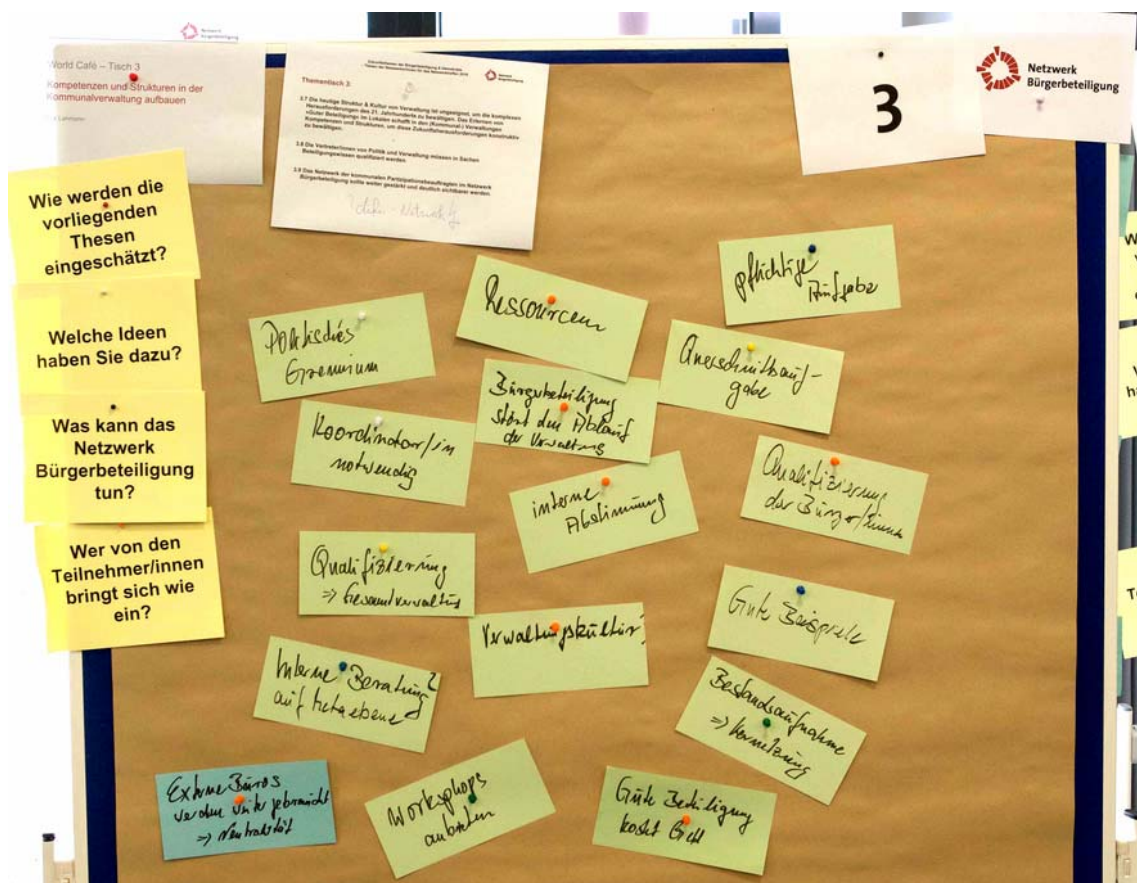 Netzwerk
Bürgerbeteiligung
World Café – Tisch 3
Kompetenzen und Strukturen in der
Kommunalverwaltung aufbauen
Thementisch 3
3.7 Die heutige Struktur & Kultur von Verwaltung ist ungeeignet, um die komplexen
Herausforderungen des 21. Jahrhunderts zu bewältigen. Das Erlernen von
»Guter Beteiligung« im Lokalen schafft in den (Kommunal-) Verwaltungen
Kompetenzen und Strukturen, um diese Zukunftsherausforderungen konstruktiv
zu bewältigen.
3.8 Die Vertreter/innen von Politik und Verwaltung müssen in Sachen
Beteiligungswissen qualifiziert werden.
3.9 Das Netzwerk der kommunalen Partizipationsbeauftragten im Netzwerk
Bürgerbeteiligung sollte weiter gestärkt und deutlich sichtbarer werden.
3
Netzwerk
Bürgerbeteiligung
Wie werden die
vorliegenden
Thesen
eingeschätzt?
Welche Ideen
haben Sie dazu?
Was kann das
Netzwerk
Bürgerbeteiligung
tun?
Wer von den
Teilnehmer/innen
bringt sich wie
ein?
pflichtige
Aufgabe
Ressourcen
Politisches
Gremium
Querschnittsauf-
gabe
Bürgerbeteiligung
stört den Ablauf
der Verwaltung
Koordinator/in
notwendig
Qualifizierung
der Bürger/innen
interne
Abstimmung
Qualifizierung
=> Gesamtverwaltung
Gute Beispiele
Verwaltungskultur!
Interne Beratung?
auf Metaebene
Bestandsaufnahme
=> Vernetzung
Externe Büros
werden weiter gebraucht
=> Neutralität
Workshops
anbieten
Gute Beteiligung
kostet Geld